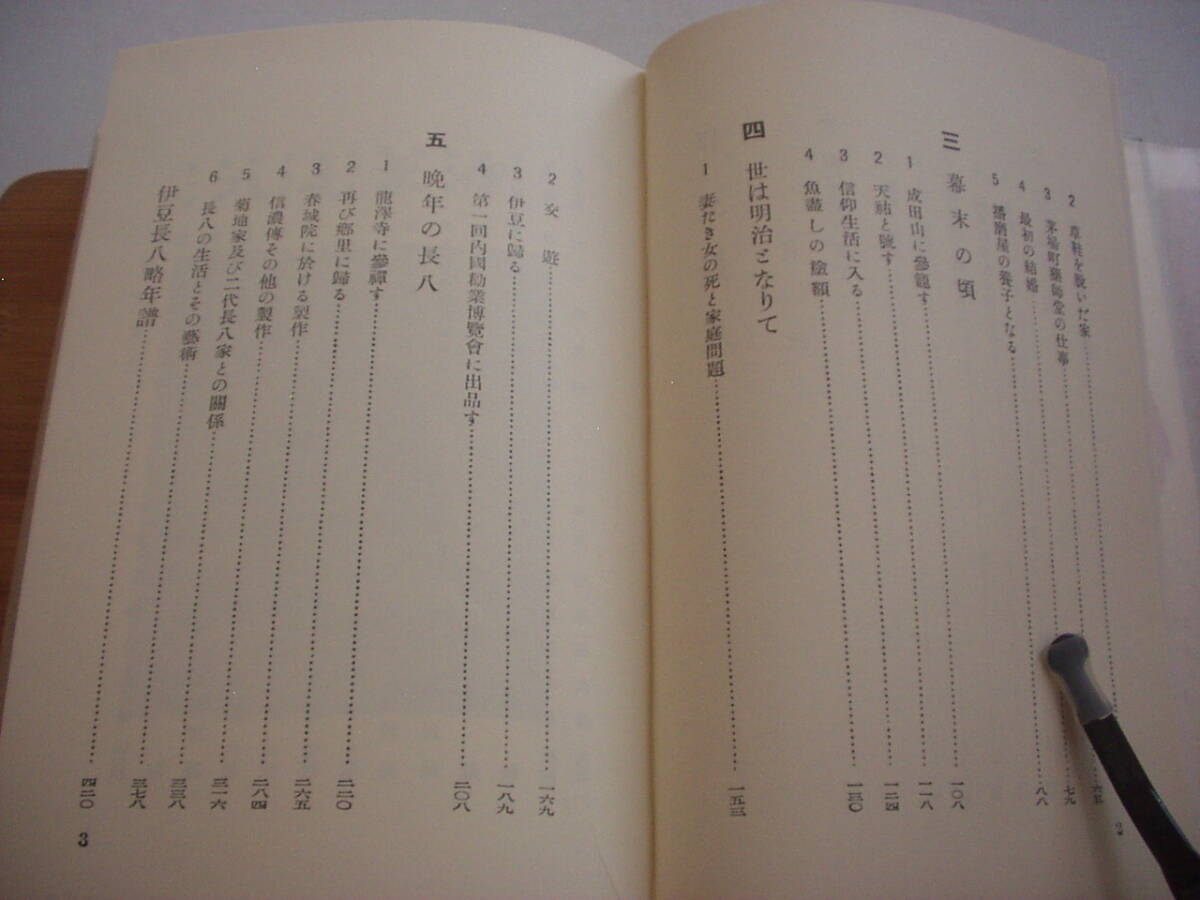 2 草鞋を脱いだ家
3 茅場町藥師堂の仕事 六五
4 最初の結婚 七九
5 播磨屋の養子となる 八八
三 幕末の頃
1 成田山に參籠す 一〇八
2 天祐と號す 一一八
3 信仰生活に入る 一二四
4 魚盡しの塗額 一三〇
四 世は明治となりて
1 妻たき女の死と家庭問題 一五三
2
2 交遊 一六九
3 伊豆に歸る 一八九
4 第一回內國勸業博覽會に出品す 二〇八
五 晩年の長八
1 龍澤寺に參禪す 二二〇
2 再び鄕里に歸る 二六五
3 春城院に於ける製作 二八四
4 信濃傳その他の製作 三一六
5 菊地家及び二代長八家との關係 三三八
6 長八の生活とその藝術 三七八
伊豆長八略年譜 四二〇
3